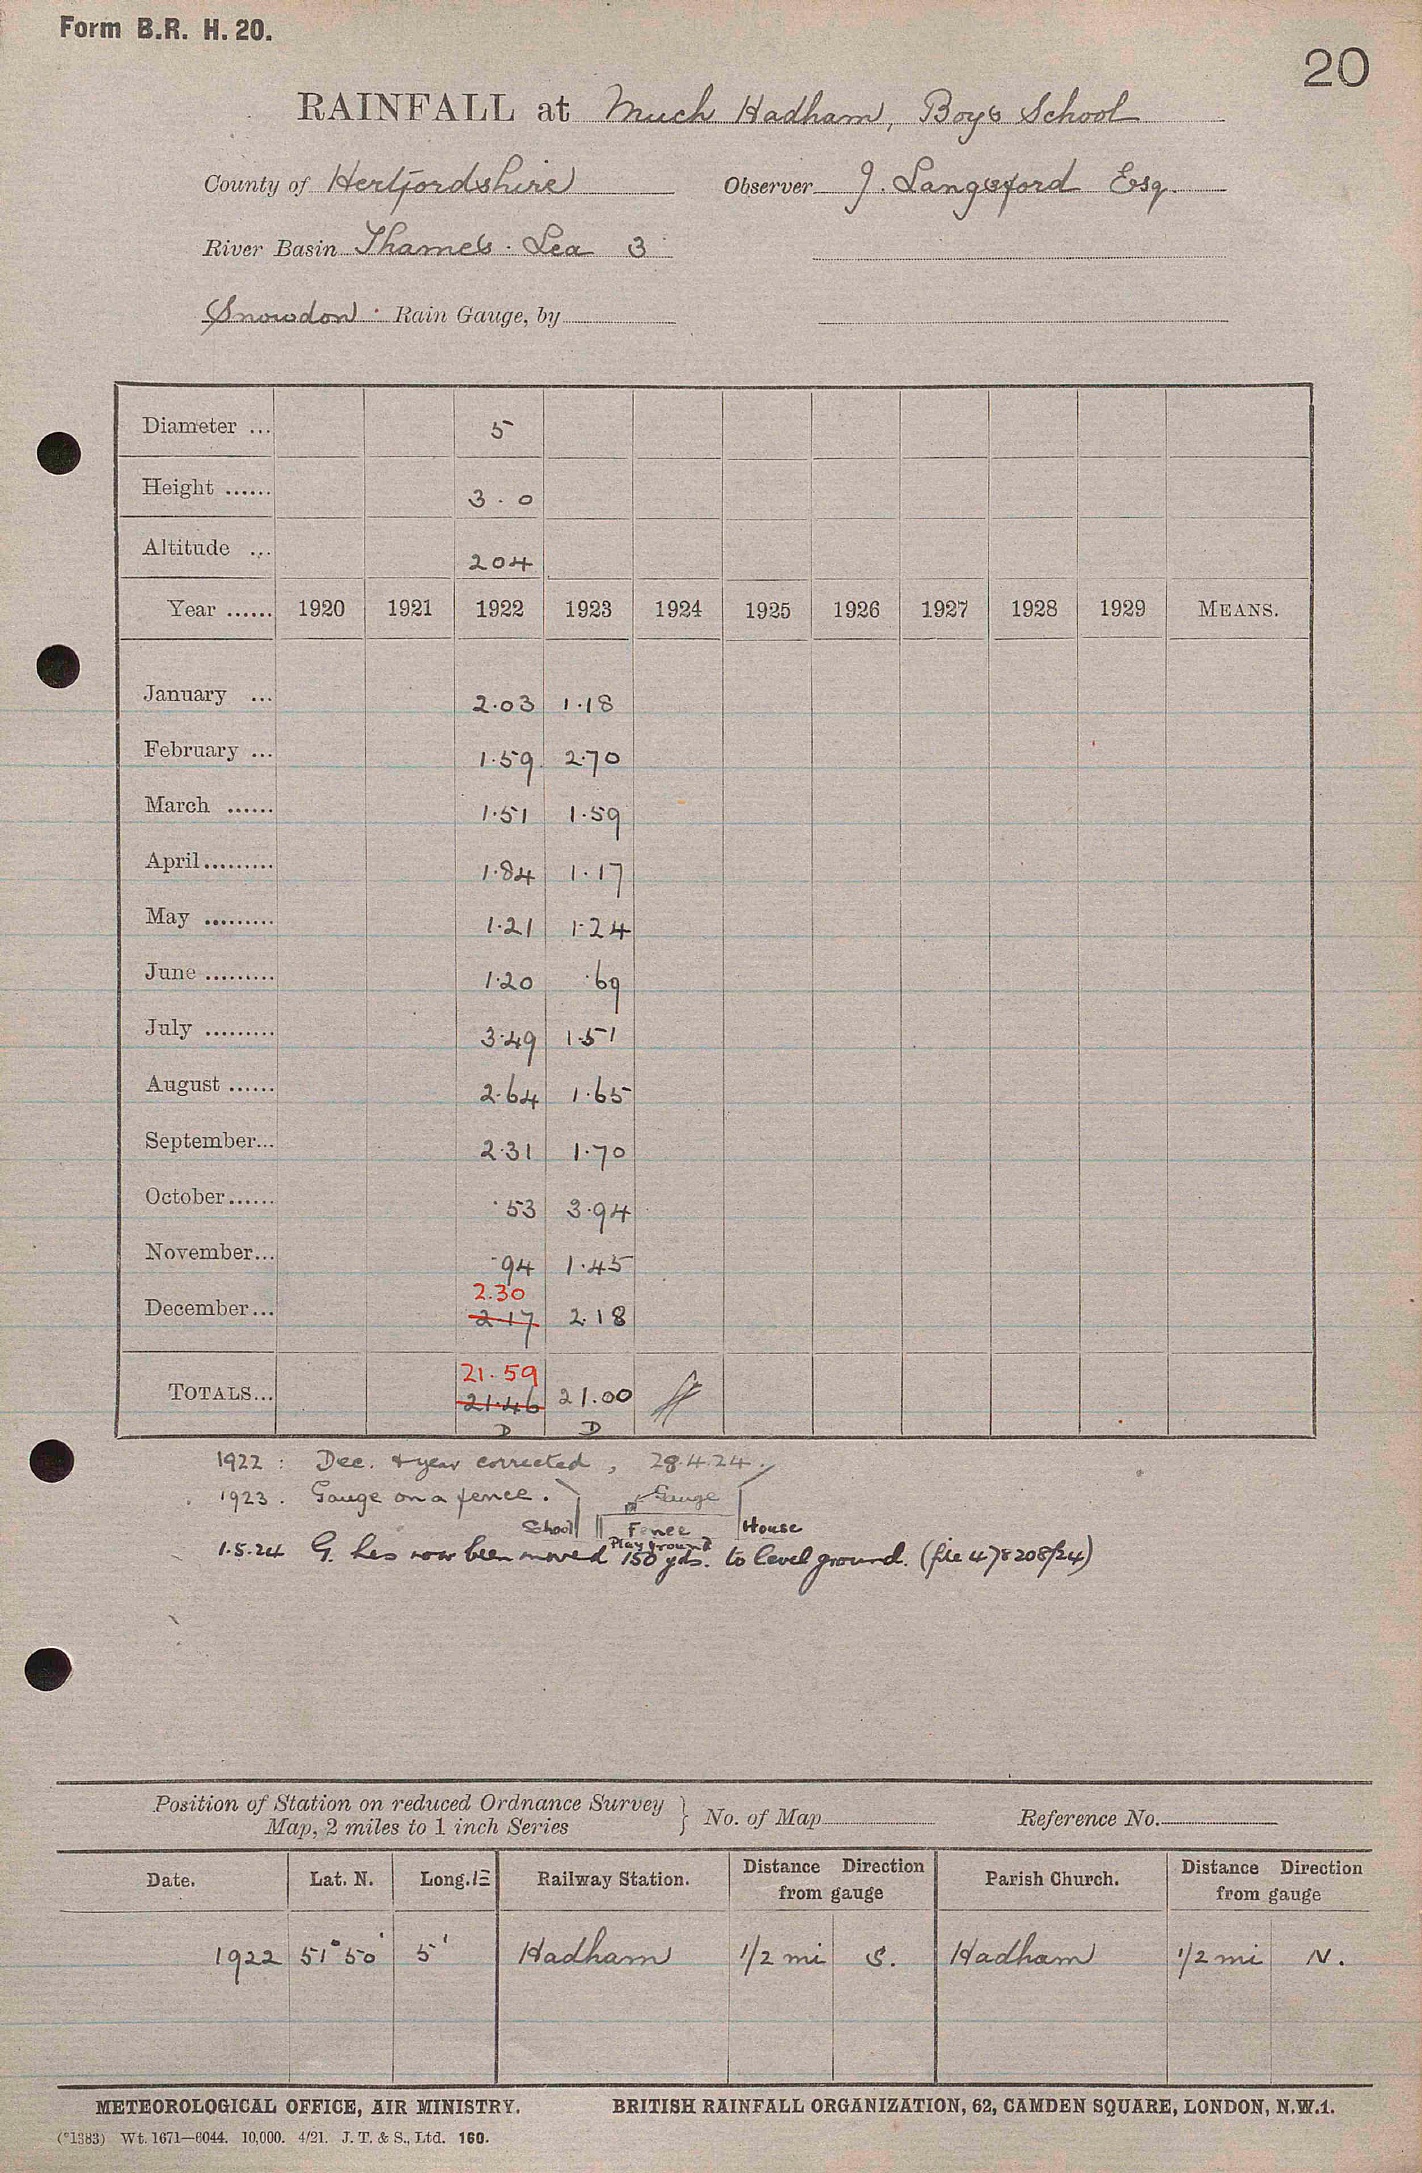 Form B.R. H. 20.
20
RAINFALL at Much Hadham, Boys School
County of Hertfordshire Observer J. Langsford Esq.
River Basin Thames · Lea 3
Snowdon Rain Gauge, by
Diameter ... 5
Height ...... 3 . 0
Altitude ... 204
Year ...... 1920 1921 1922 1923 1924 1925 1926 1927 1928 1929 MEANS.
January ... 2.03 1.18
February ... 1.59 2.70
March ...... 1.51 1.59
April ......... 1.84 1.17
May ......... 1.21 1.24
June ......... 1.20 .69
July ......... 3.49 1.51
August ...... 2.64 1.65
September... 2.31 1.70
October ...... .53 3.94
November... .94 1.45
2.30
December... 2.17 2.18
21.59
TOTALS... 21.46 21.00
D D
1922 : Dec. & year corrected, 28.4.24.
1923 . Gauge on a fence. Gauge
School Fence House
Playground
1.5.24 G. has now been moved 150 yds. to level ground. (file 478208/24)
Position of Station on reduced Ordnance Survey
Map, 2 miles to 1 inch Series } No. of Map Reference No.
Date. Lat. N. Long. E Railway Station. Distance Direction from gauge Parish Church. Distance Direction from gauge
1922 51° 50' 5' Hadham 1/2 mi S. Hadham 1/2 mi N.
METEOROLOGICAL OFFICE, AIR MINISTRY. BRITISH RAINFALL ORGANIZATION, 62, CAMDEN SQUARE, LONDON, N.W.1.
(*1383) Wt. 1671—6044. 10,000. 4/21. J. T. & S., Ltd. 160.